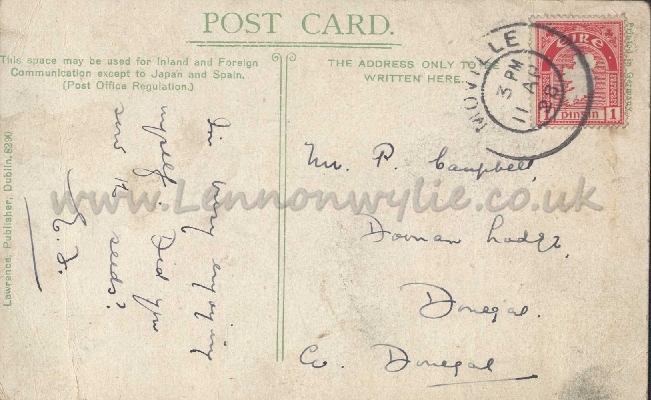 POST CARD.
This space may be used for Inland and Foreign
Communication except to Japan and Spain.
(Post Office Regulation.)
THE ADDRESS ONLY TO
WRITTEN HERE.
MOVILLE
3 PM
11 AP
28
EIRE
1 PINGIN 1
Printed in Germany
Lawrence, Publisher, Dublin.
I'm busy enjoying
myself. Did you
sow the seeds?
Mr. P. Campbell,
Doonan Lodge,
Donegal.
Co. Donegal
www.Lennonwylie.co.uk